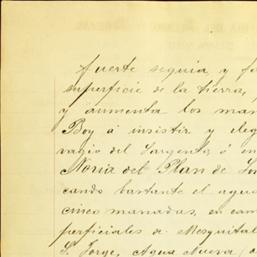 fuerte seguia y fa
superficie de la tierra,
y aumenta los man
Boy á insistir y eleg
vagio del Sargento, ó en
Noria del Plan de
cando bastante el agua
cinco manadas, en cam
perficiales de Mesquital
S. Jorge, Agua Nueva,